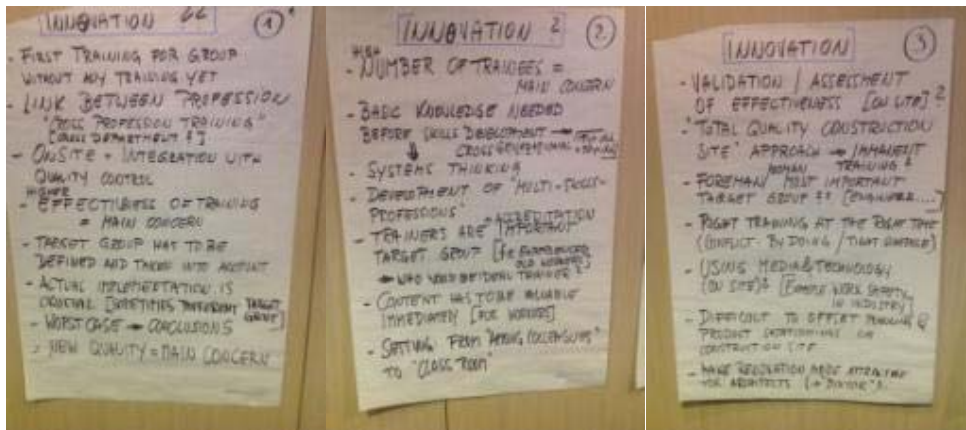 INNOVATION
1
- FIRST TRAINING FOR GROUP
WITHOUT ANY TRAINING YET
- LINK BETWEEN PROFESSION
"CROSS PROFESSION TRAINING"
[CROSS DEPARTMENT ?]
- ONSITE - INTEGRATION WITH
QUALITY CONTROL
HIGHER
- EFFECTIVENESS OF TRAINING
= MAIN CONCERN
- TARGET GROUP HAS TO BE
DEFINED AND TAKEN INTO ACCOUNT
- ACTUAL IMPLEMENTATION IS
CRUCIAL [SOMETIMES DIFFERENT TARGET
GROUP]
- WORST CASE → CONCLUSIONS
- NEW QUALITY = MAIN CONCERN
INNOVATION 2
2
HIGH
- NUMBER OF TRAINEES =
MAIN CONCERN
- BASIC KNOWLEDGE NEEDED
BEFORE SKILLS DEVELOPMENT →
CROSS GENERATIONAL
- SYSTEMS THINKING
- DEVELOPMENT OF "MULTI-SKILLS-
PROFESSIONS"
→ ACCREDITATION
- TRAINERS ARE IMPORTANT
TARGET GROUP [EXPERIENCED
OLD WORKERS]
→ WHO WOULD BE IDEAL TRAINER?
- CONTENT HAS TO BE VALUABLE
IMMEDIATELY [FOR WORKERS]
- SETTING FROM "AMONG COLLEAGUES"
TO "CLASS ROOM"
INNOVATION
3
- VALIDATION / ASSESSMENT
OF EFFECTIVENESS [ON SITE]?
- "TOTAL QUALITY CONSTRUCTION
SITE" APPROACH → IMMANENT
HUMAN TRAINING?
- FOREMAN/ MOST IMPORTANT
TARGET GROUP ?? [ENGINEERS....]
- RIGHT TRAINING AT THE RIGHT TIME
(CONFLICT - BY DOING / TIGHT SCHEDULE)
- USING MEDIA & TECHNOLOGY
(ON SITE)? [EXAMPLE WORK SAFETY
IN INDUSTRY]
- DIFFICULT TO OFFSET &
PRODUCT ON
CONSTRUCTION SITE
- MAKE RENOVATION MORE ATTRACTIVE
FOR ARCHITECTS